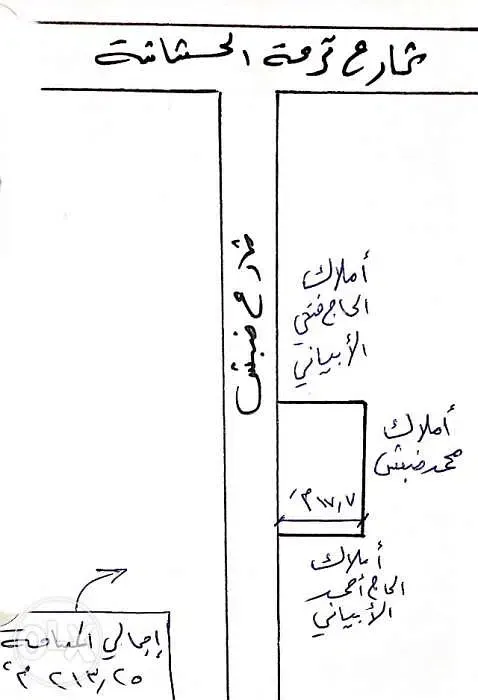 شارع ترعة الخشانية
شارع ضبش
أملاك
الحاج فتحي
الأبياني
أملاك
محمد ضبش
١٧,٧ م
أملاك
الحاج أحمد
الأبياني
إجمالي المساحة
٢١٣,٢٥ م٢
OLX